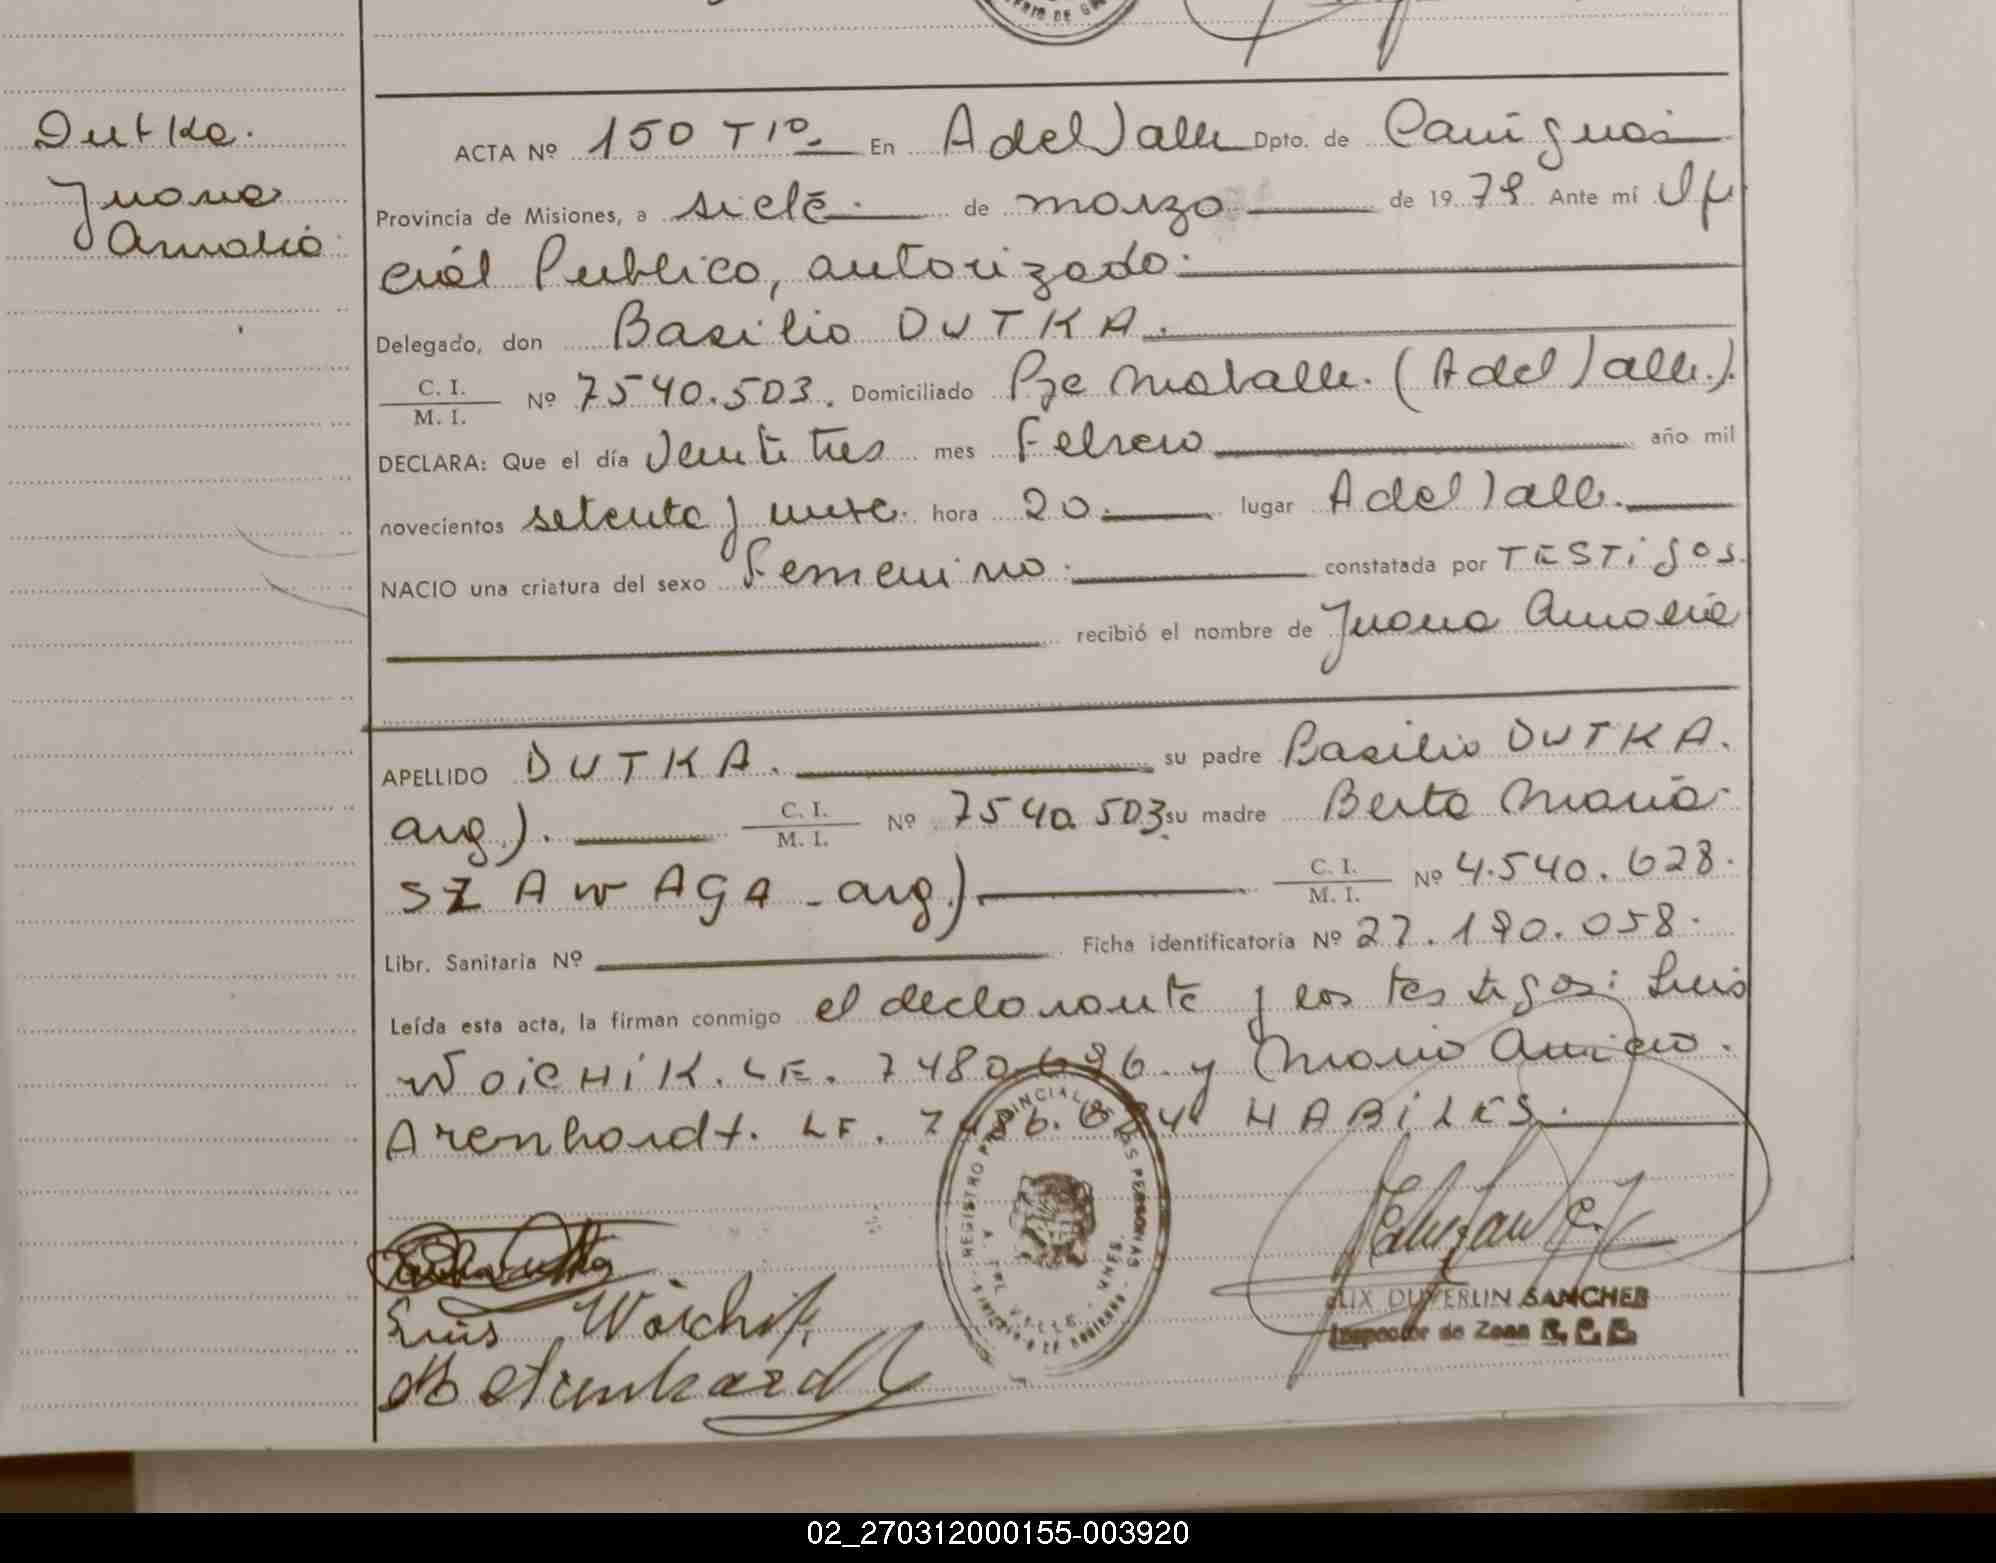 Dutka.
Juana
Amalia
ACTA Nº 150 Tº I En A del Valle Dpto. de Cainguás
Provincia de Misiones, a siete de marzo de 1979 Ante mí Ofi
cial Publico, autorizado.
Delegado, don Basilio DUTKA.
C. I. / M. I. Nº 7540.503. Domiciliado (A del Valle.).
DECLARA: Que el día Veintitres mes Febrero año mil
novecientos setenta y nueve. hora 20. lugar A del Valle.
NACIO una criatura del sexo Femenino. constatada por TESTigos.
recibió el nombre de Juana Amalia
APELLIDO DUTKA. su padre Basilio DUTKA.
arg). C. I. / M. I. Nº 7540.503 su madre Berta Maria
SZAWAGA - arg.) C. I. / M. I. Nº 4.540.628.
Libr. Sanitaria Nº Ficha identificatoria Nº 27.190.058.
Leída esta acta, la firman conmigo el declarante y los testigos: Luis
WOiCHiK. LE. 7480.696. y Mario
Arenhardt. LE. HABiLES.
REGISTRO PROVINCIAL DE LAS PERSONAS
A. DEL VALLE - MNES.
Luis Woichik
DUVERLIN SANCHEZ
Inspector de Zona R. P. P.
02_270312000155-003920